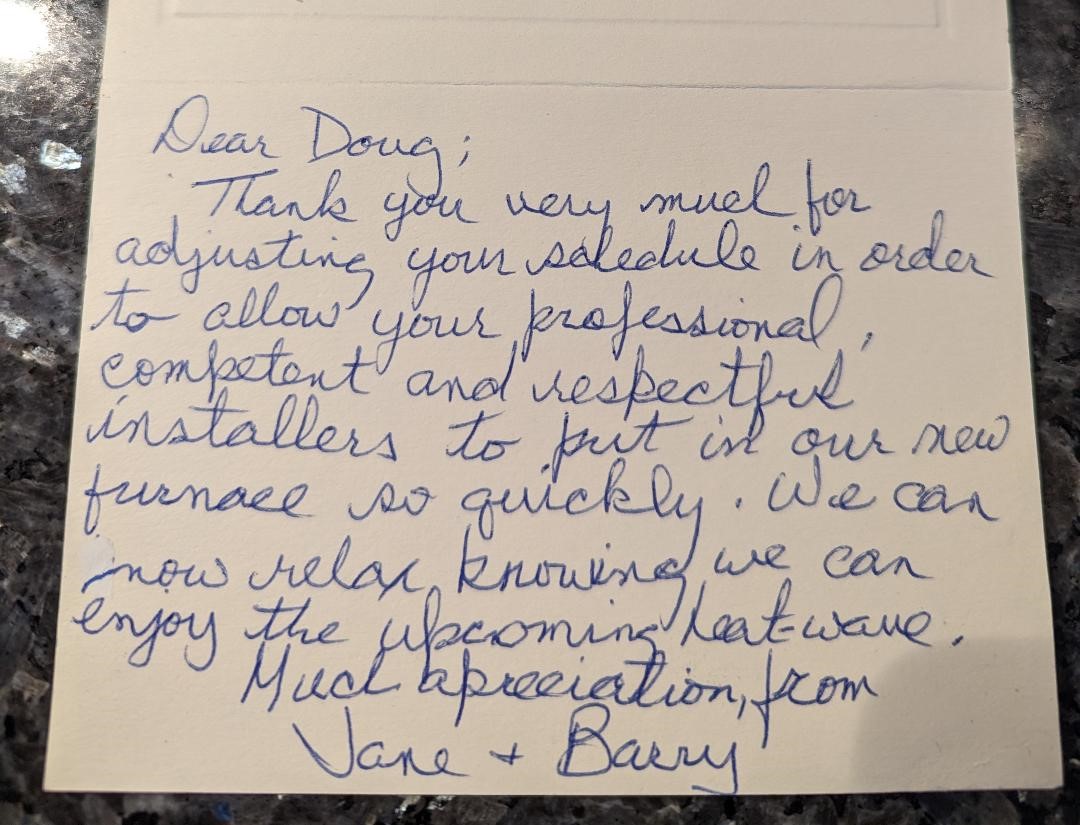 Dear Doug;
Thank you very much for
adjusting your schedule in order
to allow your professional,
competent and respectful
installers to put in our new
furnace so quickly. We can
now relax knowing we can
enjoy the upcoming heat-wave.
Much apreciation, from
Jane + Barry